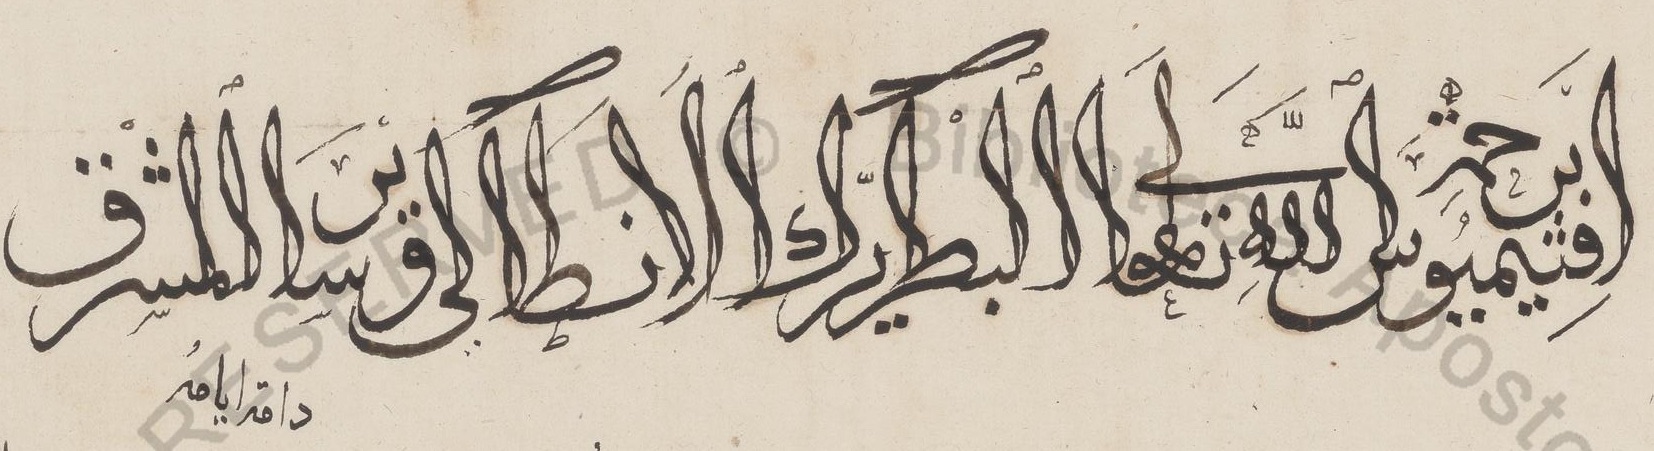 افثيميوس برحمة الله تعالى البطريرك الانطاكي وساير المشرق
دامت ايامه
RESERVED © Biblioteca Aposto